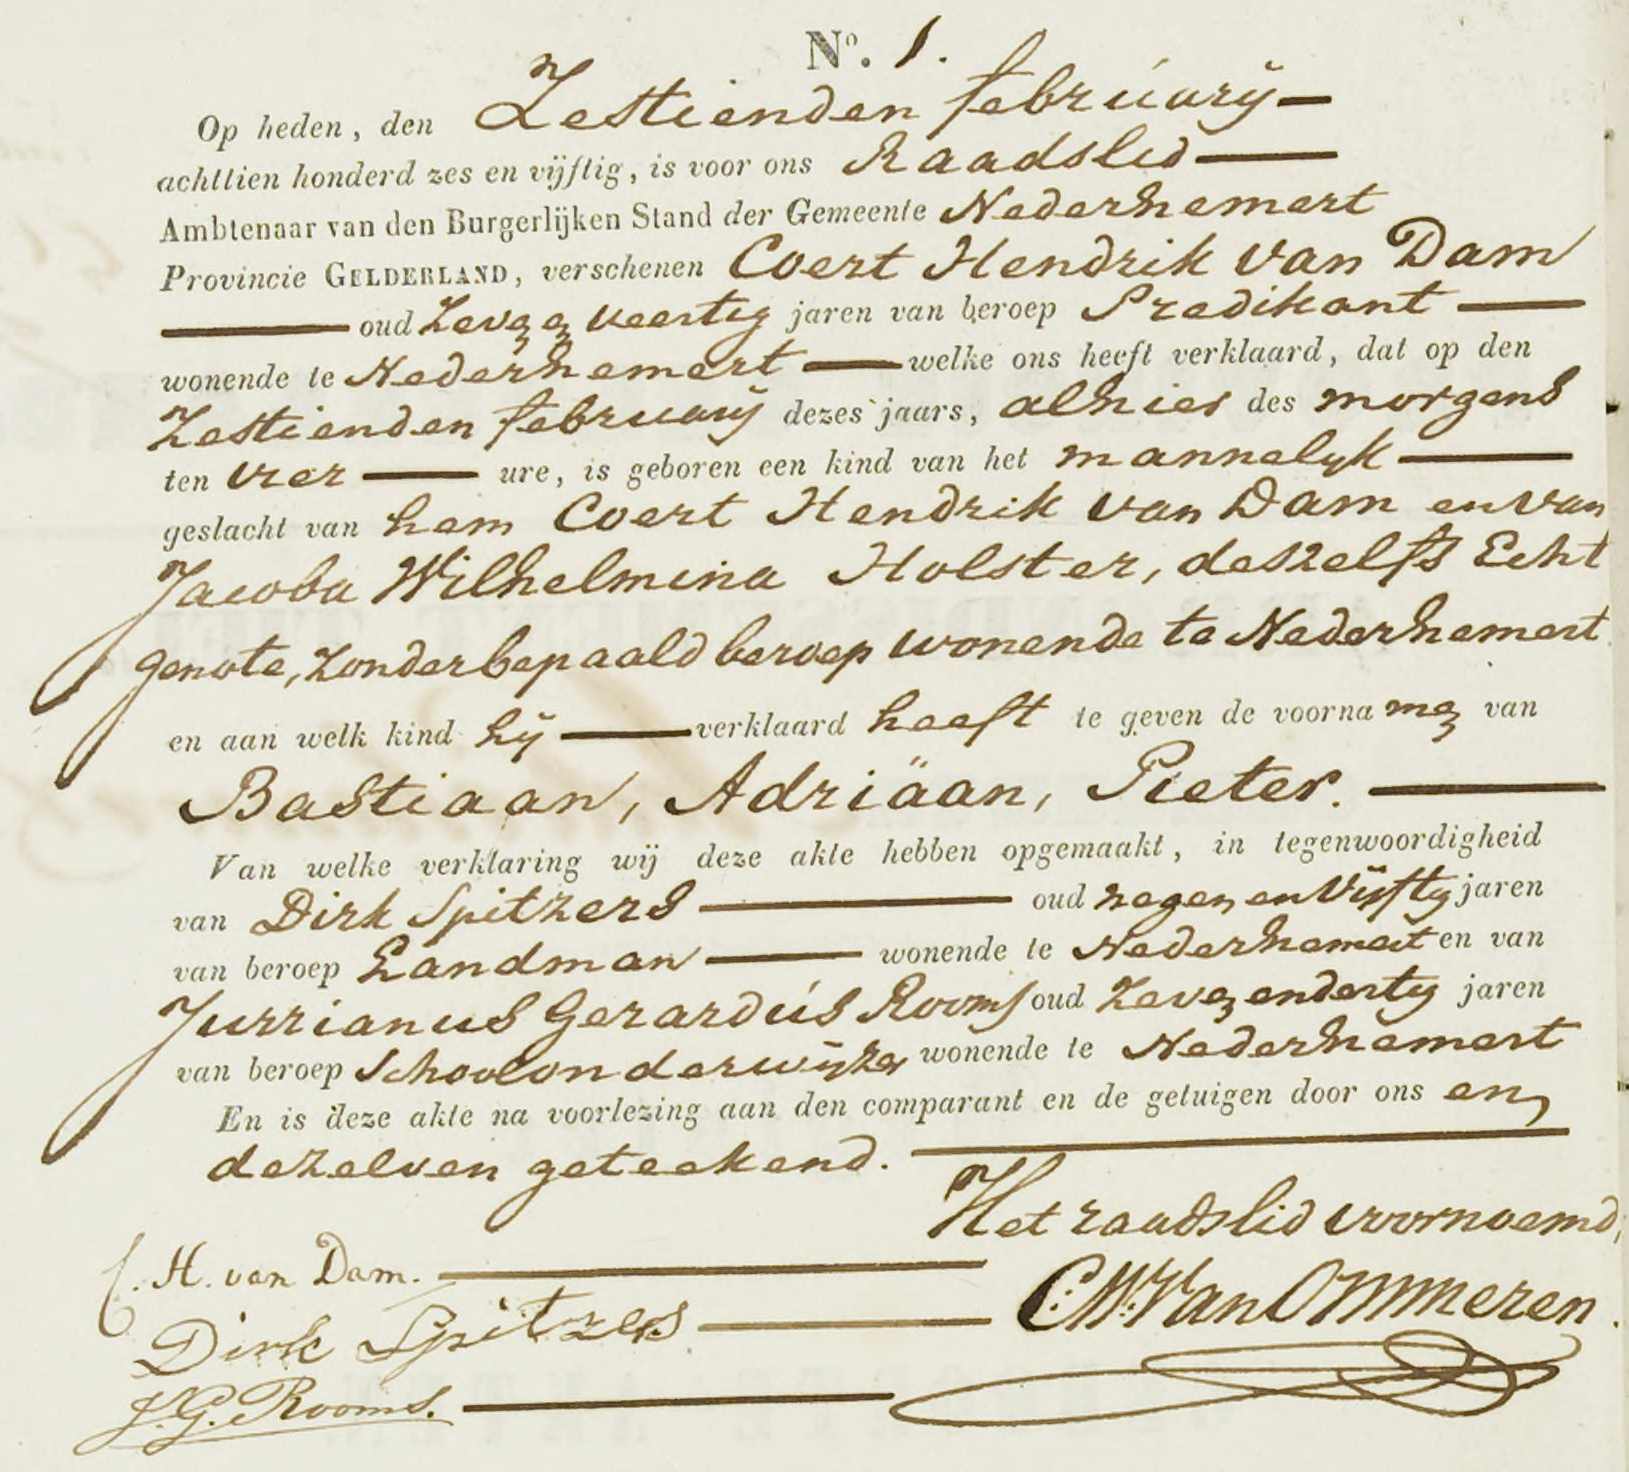 No. 1.
Op heden, den Zestienden februarij
achttien honderd zes en vijftig, is voor ons Raadslid
Ambtenaar van den Burgerlijken Stand der Gemeente Nederhemert
Provincie GELDERLAND, verschenen Coert Hendrik van Dam
oud Zeven en veertig jaren van beroep Predikant
wonende te Nederhemert welke ons heeft verklaard, dat op den
Zestienden februarij dezes jaars, alhier des morgens
ten vier ure, is geboren een kind van het mannelijk
geslacht van hem Coert Hendrik van Dam en van
Jacoba Wilhelmina Holster, deszelfs Echt
genote, zonder bepaald beroep wonende te Nederhemert
en aan welk kind hij verklaard heeft te geven de voornamen van
Bastiaan, Adriäan, Pieter.
Van welke verklaring wij deze akte hebben opgemaakt, in tegenwoordigheid
van Dirk Spitzers oud negen en Vijftig jaren
van beroep Landman wonende te Nederhemert en van
Jurrianus Gerardus Rooms oud Zeven en dertig jaren
van beroep Schoolonderwijzer wonende te Nederhemert
En is deze akte na voorlezing aan den comparant en de getuigen door ons en
dezelven geteekend.
Het raadslid voornoemd,
C. H. van Dam.
C: W: Van Ommeren.
Dirk Spitzers
J. G. Rooms.